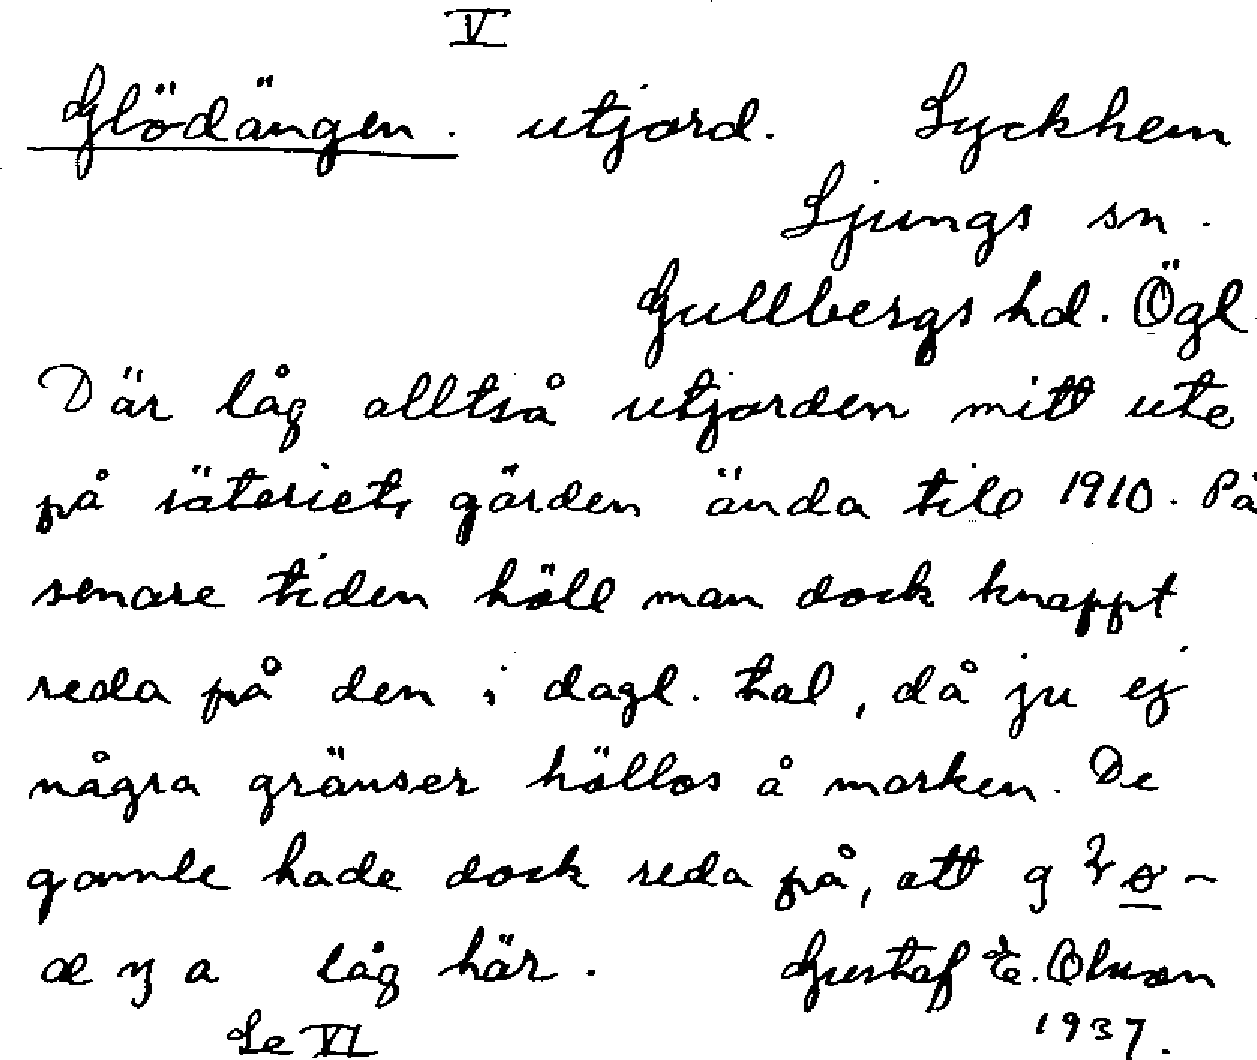 V
Glödängen. utjord. Lyckhem
Ljungs sn.
Gullbergs hd. Ögl
Där låg alltså utjorden mitt ute
på säteriets gärden ända till 1910. På
senare tiden höll man dock knappt
reda på den i dagl. tal, då ju ej
några gränser höllos å marken. De
gamle hade dock reda på, att
låg här. Gustaf E. Olsson
Se VI 1937.